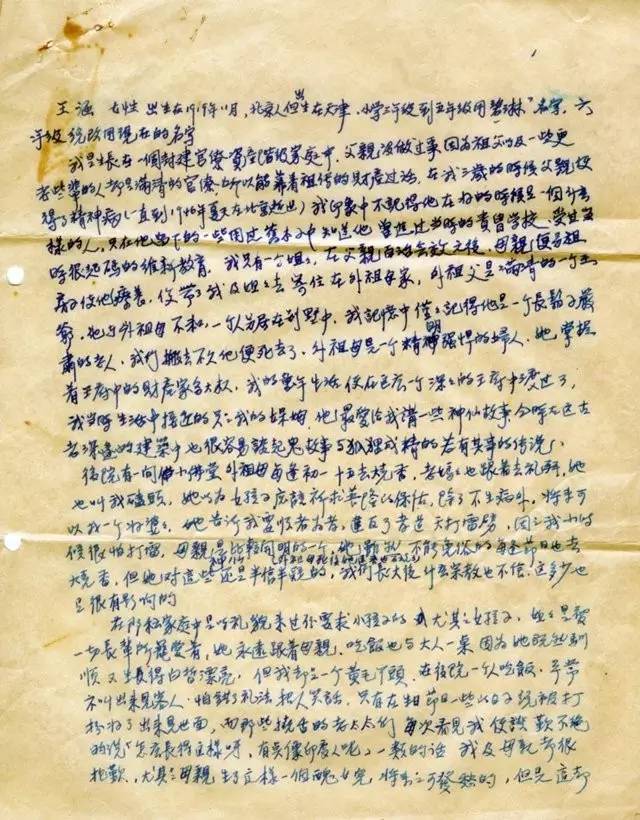 1
王涵 女性 出生在1919年11月,北京人但出生在天津,小学三年级到五年级用碧琳"名字,六
年级统改用现在的名字
我是生长在一个封建官僚资产阶级家庭中,父亲没做过事因为祖父以及一些更
老些辈的人都是满清的官僚,所以能靠着祖传的财产过活,在我三岁的时候父亲便
得了精神病(一直到1946年夏天在北京逝世)我印象中不记得他在好的时候是一个什么
样的人,只在他留下的一些用过签本子中知道他曾进过当时的贵胄学校,受过当
时很起码的维新教育。我只有一个姐姐,在父亲 之后,母亲便
带了我及姐姐去寄住在外祖母家,外祖父是满清的一个王
爷,他与外祖母不和,一个人另居在别墅中,我记忆中仅仅记得他是一个长鬍子严
肃的老人,我们搬去不久他便死去了,外祖母是一个精明强悍的妇人,她掌握
着王府中的财产家务大权,我的童年生活便在这么一个深深的王府中渡过了,
我当时生活中接近的只有我的保姆,他最爱给我讲一些神仙故事,同时在这古
老深邃的建筑中也很容易谈起鬼故事与狐狸成精的若有其事的传说,
后院有一间佛小佛堂外祖母每逢初一十五去烧香,老妈妈也跟着去礼拜,她
也叫我磕头,她以为女孩子应该祈求菩萨的保佑,除了不生病外,将来可
以找一个好婆婆,她告诉我要忤逆 ,违反了孝道天打雷劈,因之我小时
候很怕打雷,母亲是比较开明的一个,她 不能免俗的每逢节日也去
烧香,但她对这些还是半信半疑的,我们长大后什么宗教也不信,这多少也
是很有影响的
在那种家庭中是以礼貌来过份要求小孩子的 尤其是女孩子,姐姐是被
一切长辈所宠爱着,她永远跟着母亲,吃饭也与大人一桌因为她既然驯
顺又生得白皙漂亮,但我却是一个黄毛丫头,在后院一个人吃饭,平常
不叫出来见客人,怕错了礼法把人笑话,只有在年节日一些 日子统被打
扮好了出来见世面,而那些挑舌的老太太们每次看见我便谈叹不绝
的说"怎么长得这样呀,有点像印度人呢,"一类的话 我及母亲都很
抱歉,尤其是母亲生了这样一个丑女儿,将来是可发愁的,但是这却